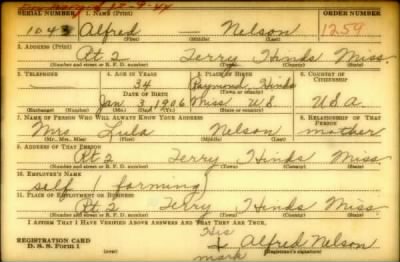 12-9-44
SERIAL NUMBER 1. NAME (Print) ORDER NUMBER
1043 Alfred — Nelson 1254
(First) (Middle) (Last)
2. ADDRESS (Print)
Rt 2 Terry Hinds Miss.
(Number and street or R. F. D. number) (Town) (County) (State)
3. TELEPHONE 4. AGE IN YEARS 5. PLACE OF BIRTH 6. COUNTRY OF CITIZENSHIP
34 Raymond Hinds
DATE OF BIRTH (Town) (County)
Jan 3 1906 Miss U.S. U.S.A.
(Exchange) (Number) (Mo.) (Day) (Yr.) (State) (Country)
7. NAME OF PERSON WHO WILL ALWAYS KNOW YOUR ADDRESS 8. RELATIONSHIP OF THAT PERSON
Mrs. Lula Nelson mother
(Mr., Mrs., Miss) (First) (Middle) (Last)
9. ADDRESS OF THAT PERSON
Rt 2 Terry Hinds Miss
(Number and street or R. F. D. number) (Town) (County) (State)
10. EMPLOYER'S NAME
self farming
11. PLACE OF EMPLOYMENT OR BUSINESS
Rt 2 Terry Hinds Miss
(Number and street or R. F. D. number) (Town) (County) (State)
I AFFIRM THAT I HAVE VERIFIED ABOVE ANSWERS AND THAT THEY ARE TRUE.
His
REGISTRATION CARD x Alfred Nelson
D. S. S. Form 1 (over) mark (Registrant's signature)